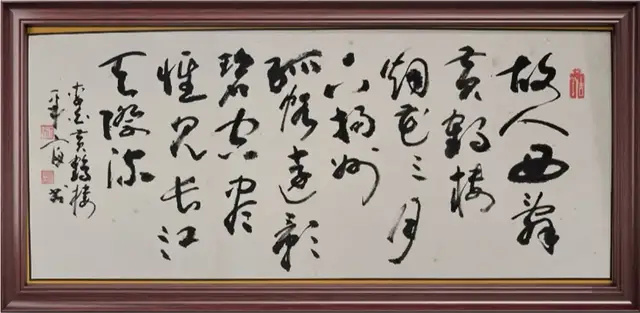 故人西辞
黄鹤楼
烟花三月
下扬州
孤帆远影
碧空尽
惟见长江
天际流
李白黄鹤楼
书